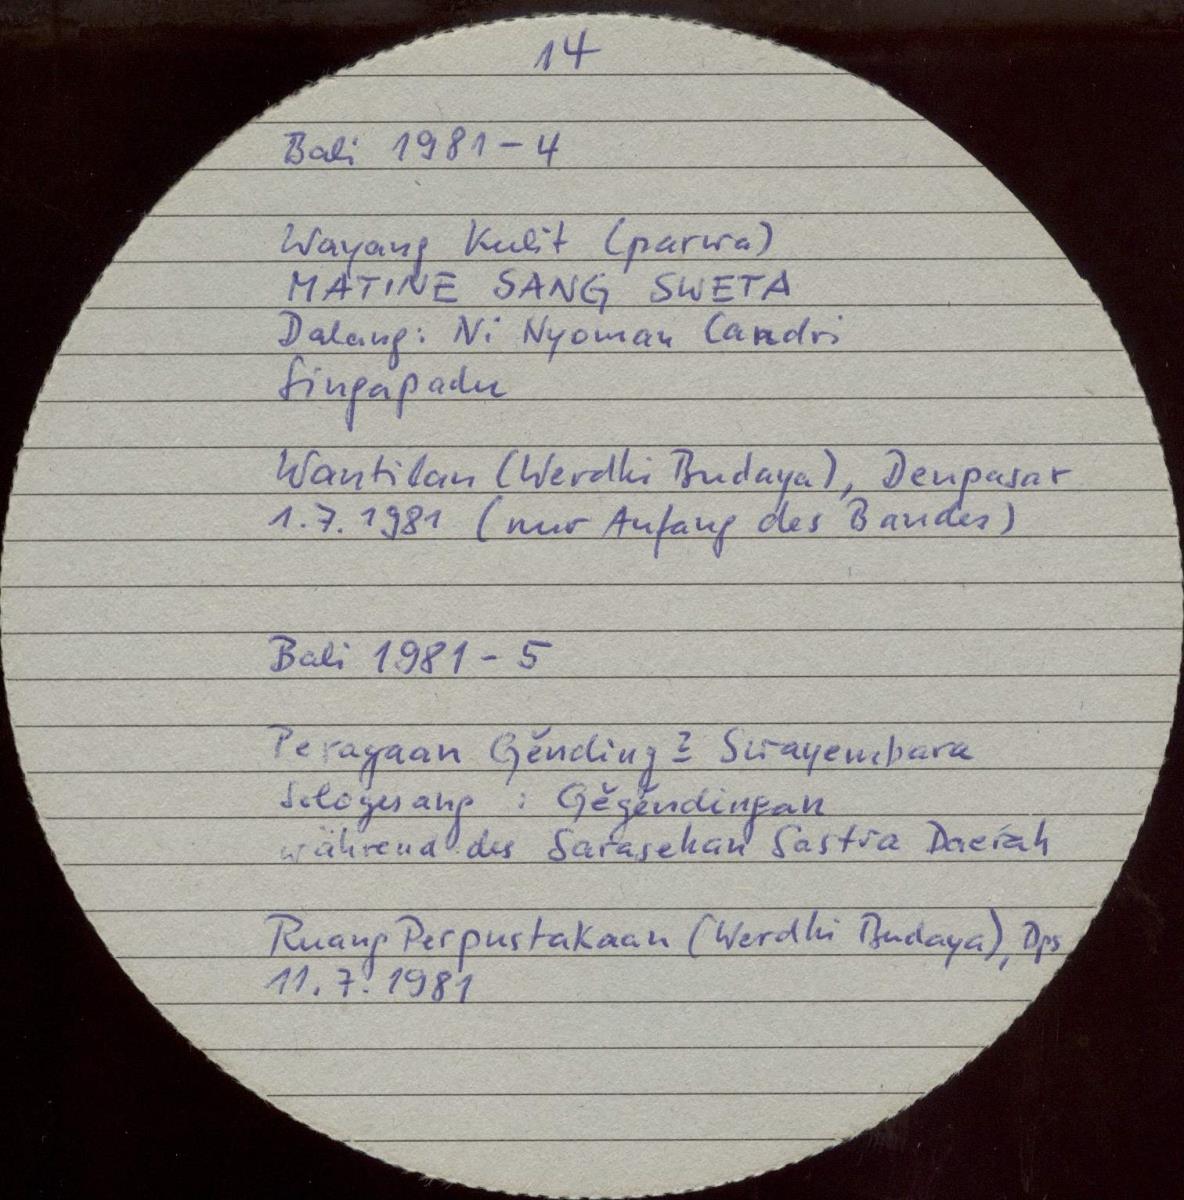 14
Bali 1981-4
Wayang Kulit (parwa)
MATINE SANG SWETA
Dalang: Ni Nyoman Candri
Singapadu
Wantilan (Werdhi Budaya), Denpasar
1.7.1981 (nur Anfang des Bandes)
Bali 1981-5
Peragaan Gĕnding2 Swayembara
Sologesang : Gĕgĕndingan
während des Sarasehan Sastra Daerah
Ruang Perpustakaan (Werdhi Budaya), Dps
11.7.1981